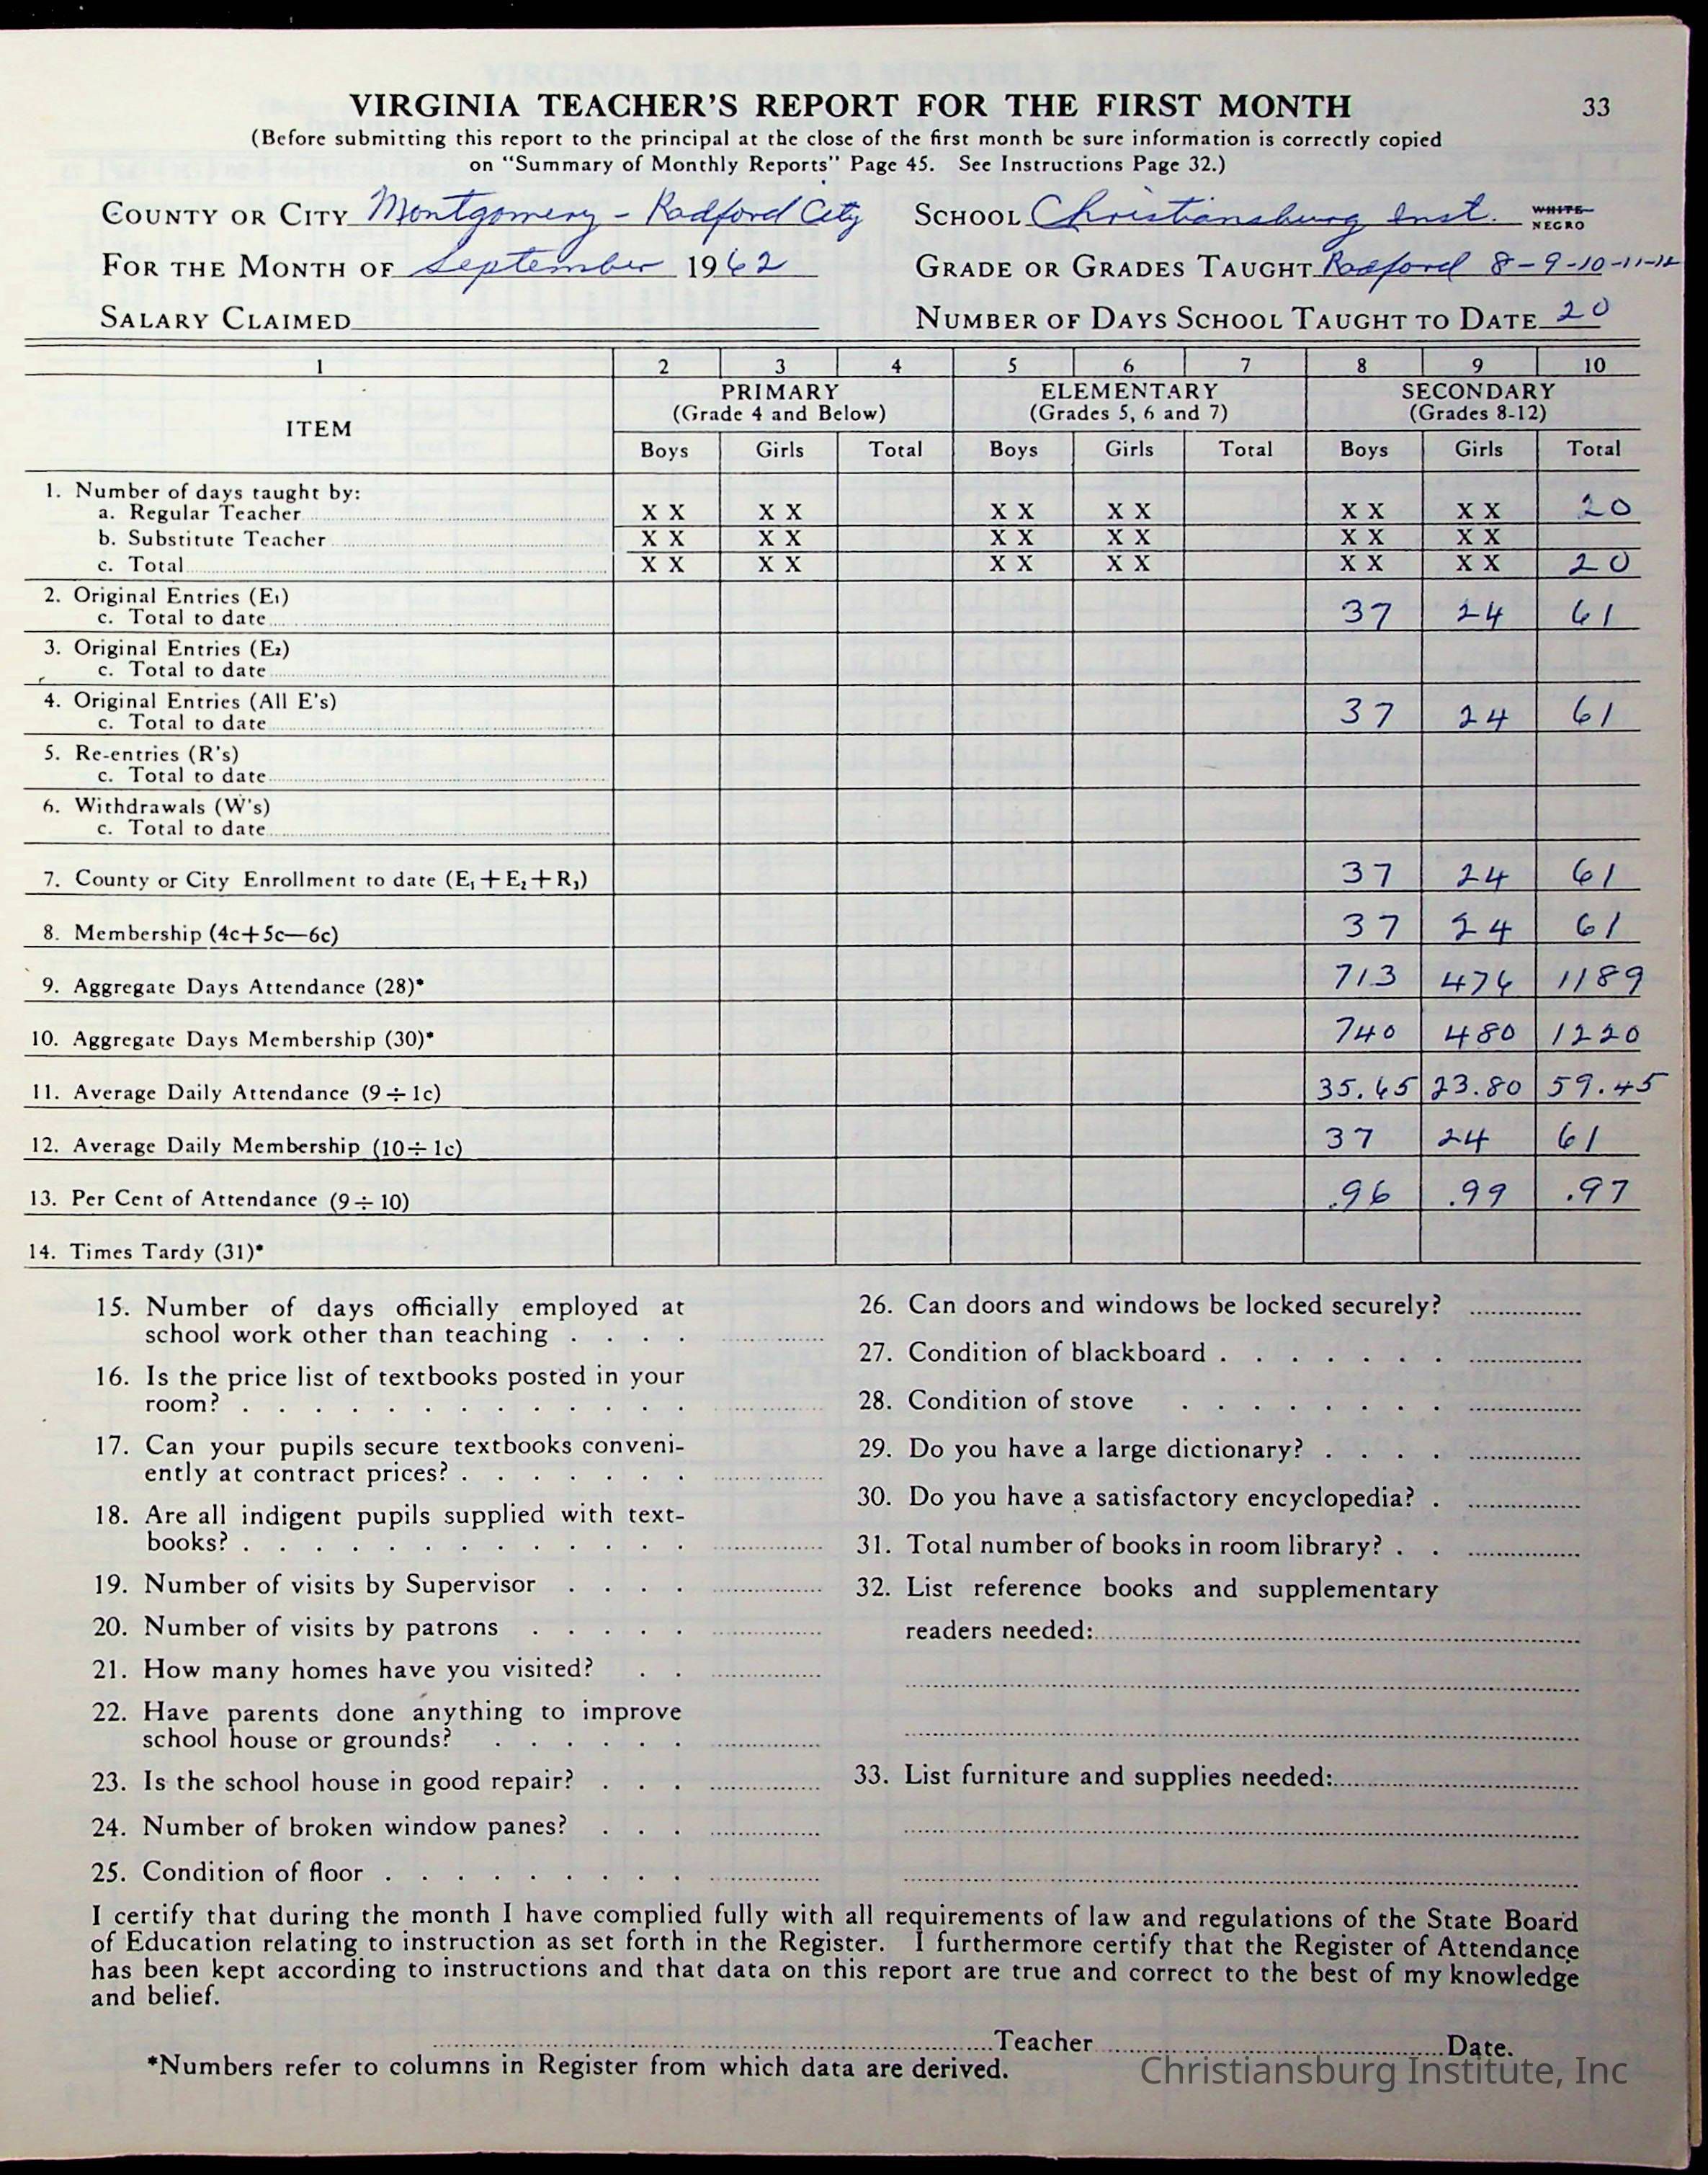 VIRGINIA TEACHER'S REPORT FOR THE FIRST MONTH 33
(Before submitting this report to the principal at the close of the first month be sure information is correctly copied
on "Summary of Monthly Reports" Page 45. See Instructions Page 32.)
COUNTY OR CITY Montgomery - Radford City SCHOOL Christiansburg Inst. WHITE NEGRO
FOR THE MONTH OF September 1962 GRADE OR GRADES TAUGHT Radford 8-9-10-11-12
SALARY CLAIMED NUMBER OF DAYS SCHOOL TAUGHT TO DATE 20
1 2 3 4 5 6 7 8 9 10
ITEM PRIMARY ELEMENTARY SECONDARY
(Grade 4 and Below) (Grades 5, 6 and 7) (Grades 8-12)
Boys Girls Total Boys Girls Total Boys Girls Total
1. Number of days taught by:
a. Regular Teacher X X X X X X X X X X X X 20
b. Substitute Teacher X X X X X X X X X X X X
c. Total X X X X X X X X X X X X 20
2. Original Entries (E1)
c. Total to date 37 24 61
3. Original Entries (E2)
c. Total to date
4. Original Entries (All E's)
c. Total to date 37 24 61
5. Re-entries (R's)
c. Total to date
6. Withdrawals (W's)
c. Total to date
7. County or City Enrollment to date (E1+E2+R3) 37 24 61
8. Membership (4c+5c—6c) 37 24 61
9. Aggregate Days Attendance (28)* 713 476 1189
10. Aggregate Days Membership (30)* 740 480 1220
11. Average Daily Attendance (9÷1c) 35.65 23.80 59.45
12. Average Daily Membership (10÷1c) 37 24 61
13. Per Cent of Attendance (9÷10) .96 .99 .97
14. Times Tardy (31)*
15. Number of days officially employed at
school work other than teaching
16. Is the price list of textbooks posted in your
room?
17. Can your pupils secure textbooks conveni-
ently at contract prices?
18. Are all indigent pupils supplied with text-
books?
19. Number of visits by Supervisor
20. Number of visits by patrons
21. How many homes have you visited?
22. Have parents done anything to improve
school house or grounds?
23. Is the school house in good repair?
24. Number of broken window panes?
25. Condition of floor
26. Can doors and windows be locked securely?
27. Condition of blackboard
28. Condition of stove
29. Do you have a large dictionary?
30. Do you have a satisfactory encyclopedia?
31. Total number of books in room library?
32. List reference books and supplementary
readers needed:
33. List furniture and supplies needed:
I certify that during the month I have complied fully with all requirements of law and regulations of the State Board
of Education relating to instruction as set forth in the Register. I furthermore certify that the Register of Attendance
has been kept according to instructions and that data on this report are true and correct to the best of my knowledge
and belief.
Teacher Date.
*Numbers refer to columns in Register from which data are derived.
Christiansburg Institute, Inc